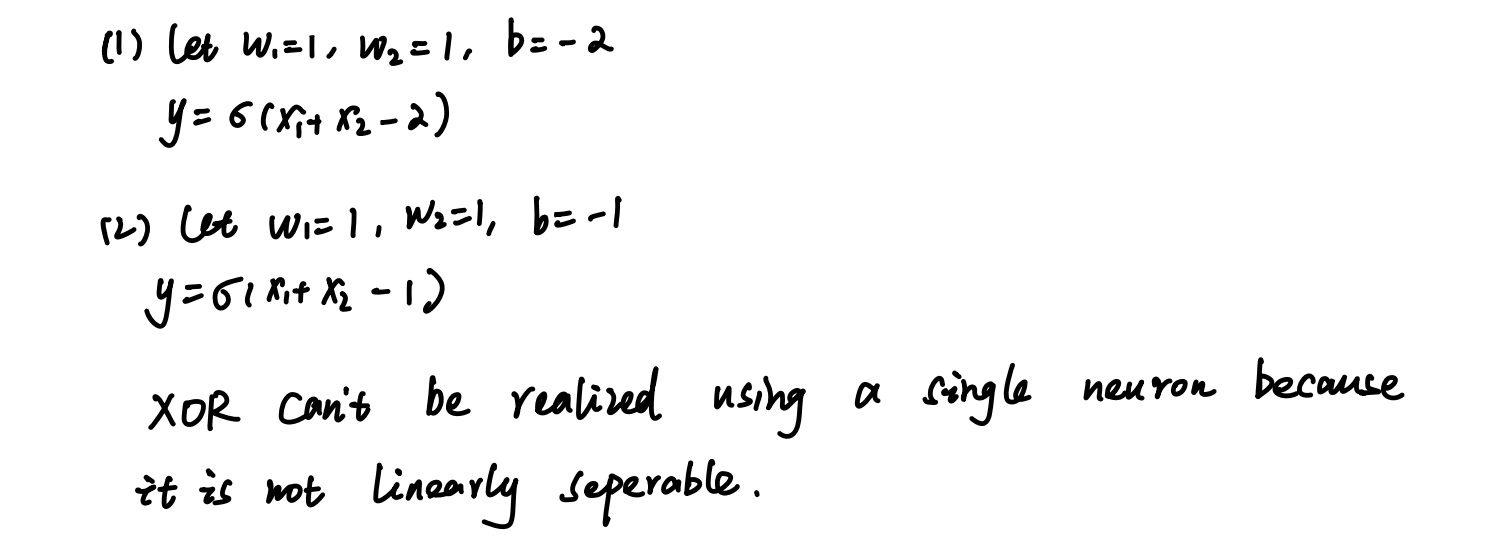 (1) Let w₁=1, w₂=1, b=-2
y=σ(x₁+x₂-2)
(2) Let w₁=1, w₂=1, b=-1
y=σ(x₁+x₂-1)
XOR can't be realized using a single neuron because
it is not linearly seperable.